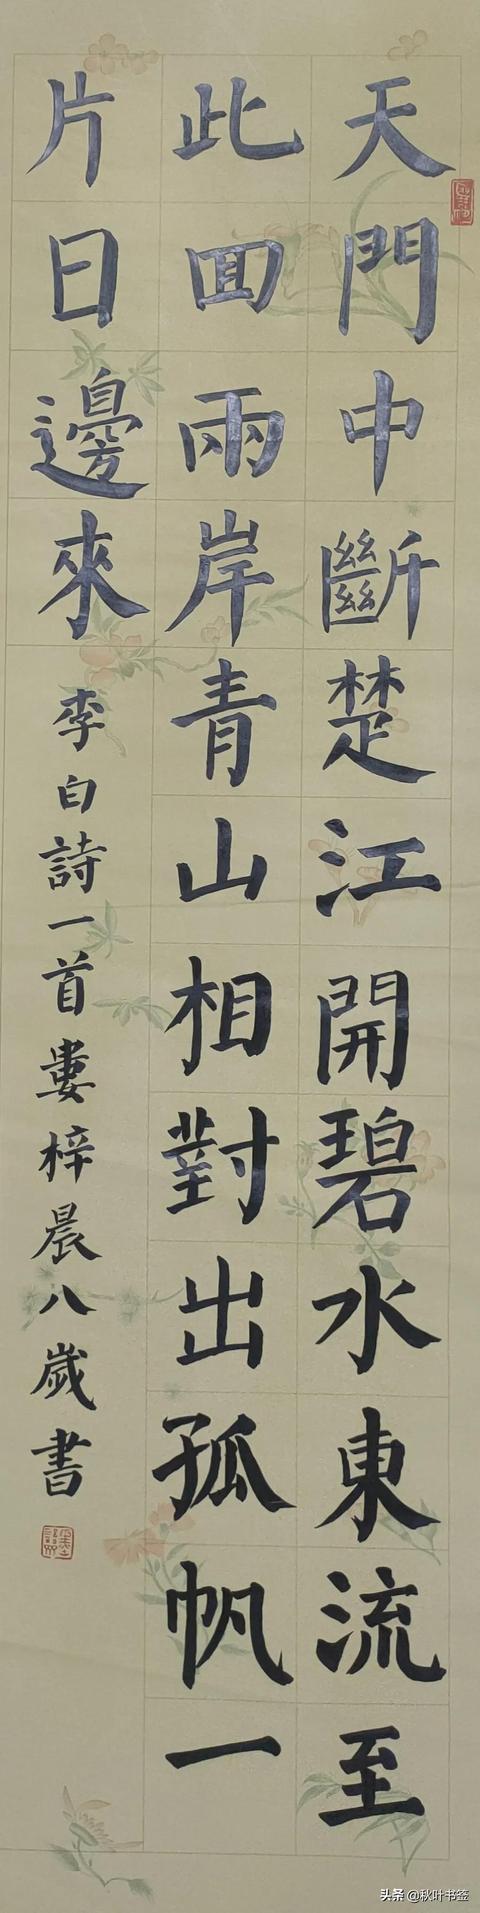 天門中斷楚江開碧水東流至
此回兩岸青山相對出孤帆一
片日邊來
李白詩一首婁梓晨八歲書
头条 @秋叶书签